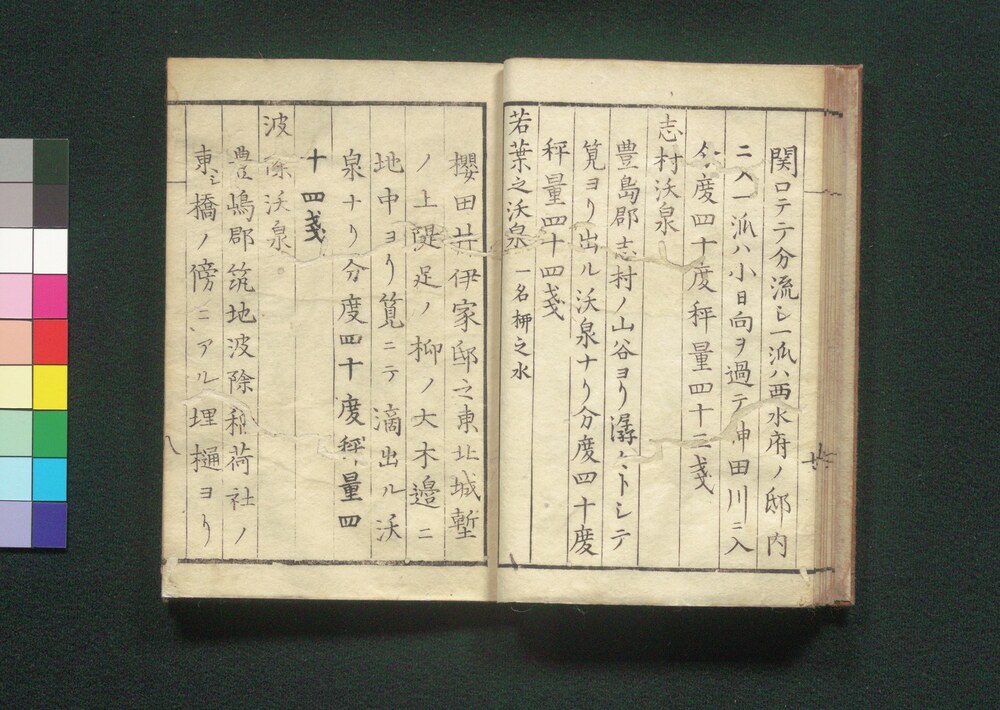 関口テテ分流シ一派ハ西水府ノ邸内
ニ入一派ハ小日向ヲ過テ申田川ニ入
分度四十度秤量四十三戔
志村沃泉
豊島郡志村ノ山谷ヨリ潺々トシテ
筧ヨリ出ル沃泉ナリ分度四十度
秤量四十四戔
若葉之沃泉 一名柳之水
櫻田井伊家邸之東北城塹
ノ上隄足ノ柳ノ大木邉ニ
地中ヨリ筧ニテ滴出ル沃
泉ナリ分度四十度秤量四
十四戔
波除沃泉
豊嶋郡筑地波除稲荷社ノ
東ニ橋ノ傍ニアル埋樋ヨリ